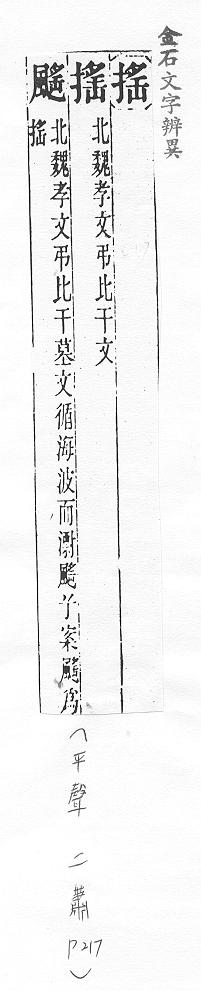 金石文字辨異
搖
搖 北魏孝文弔比干文
颻 北魏孝文弔比干墓文循海波而颻兮案颻為
搖
(平聲 二蕭 P217)